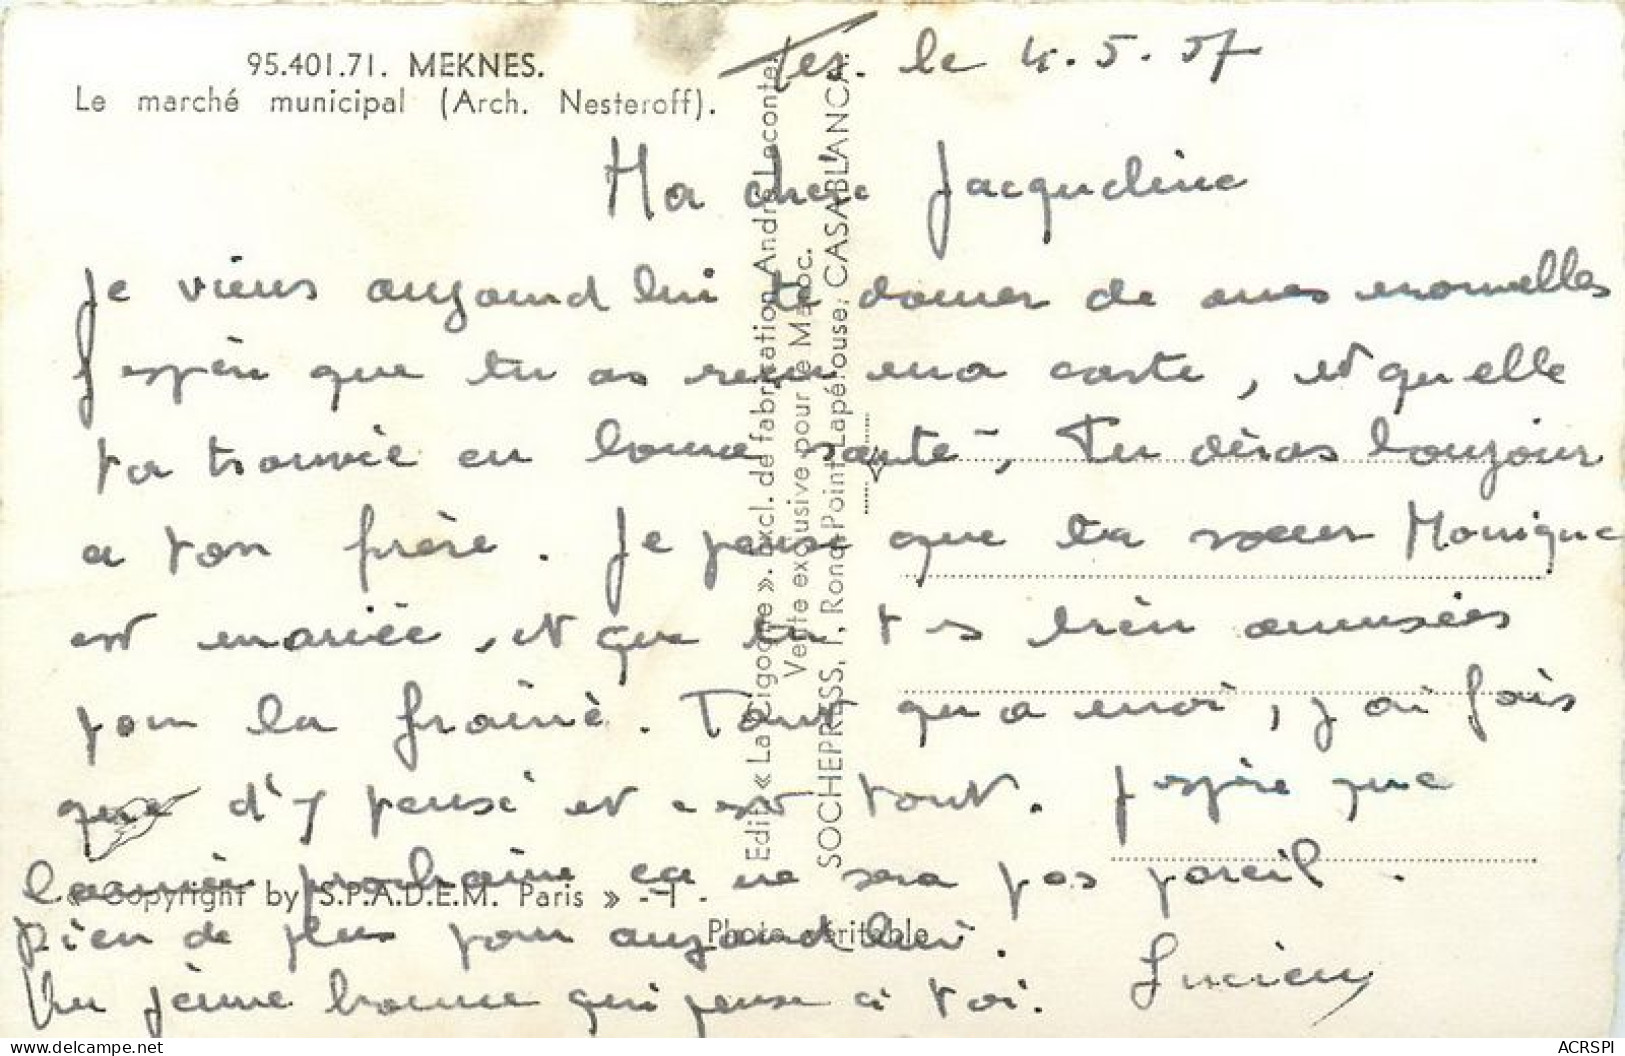 95.401.71. MEKNES.
Le marché municipal (Arch. Nesteroff).
Fes. le 4.5.57
Ma chere Jacqueline
Je viens aujourd hui te donner de mes nouvelles
J espèr que tu as reçu ma carte, et qu elle
ta trouvée en bonne santé, Tu diras bonjour
a ton frère. Je pense que ta sœur Monique
est mariée, et que tu t es bièn amusées
pour la
Tant qu a moi, j ai fais
que d'y pensé et c est tout. J espère que
l année prochaine ca ne sera pas pareil.
Rien de plus pour aujourd hui.
Un jeune homme qui pense a toi. Lucien
Edit. « La Cigogne ». Excl. de fabrication André Leconte.
Vente exclusive pour le Maroc.
SOCHEPRESS, 1, Rond-Point Lapérouse, CASABLANCA.
« Copyright by S.P.A.D.E.M. Paris » - 1 -
Photo véritable
https://www.delcampe.net
ACRSPI